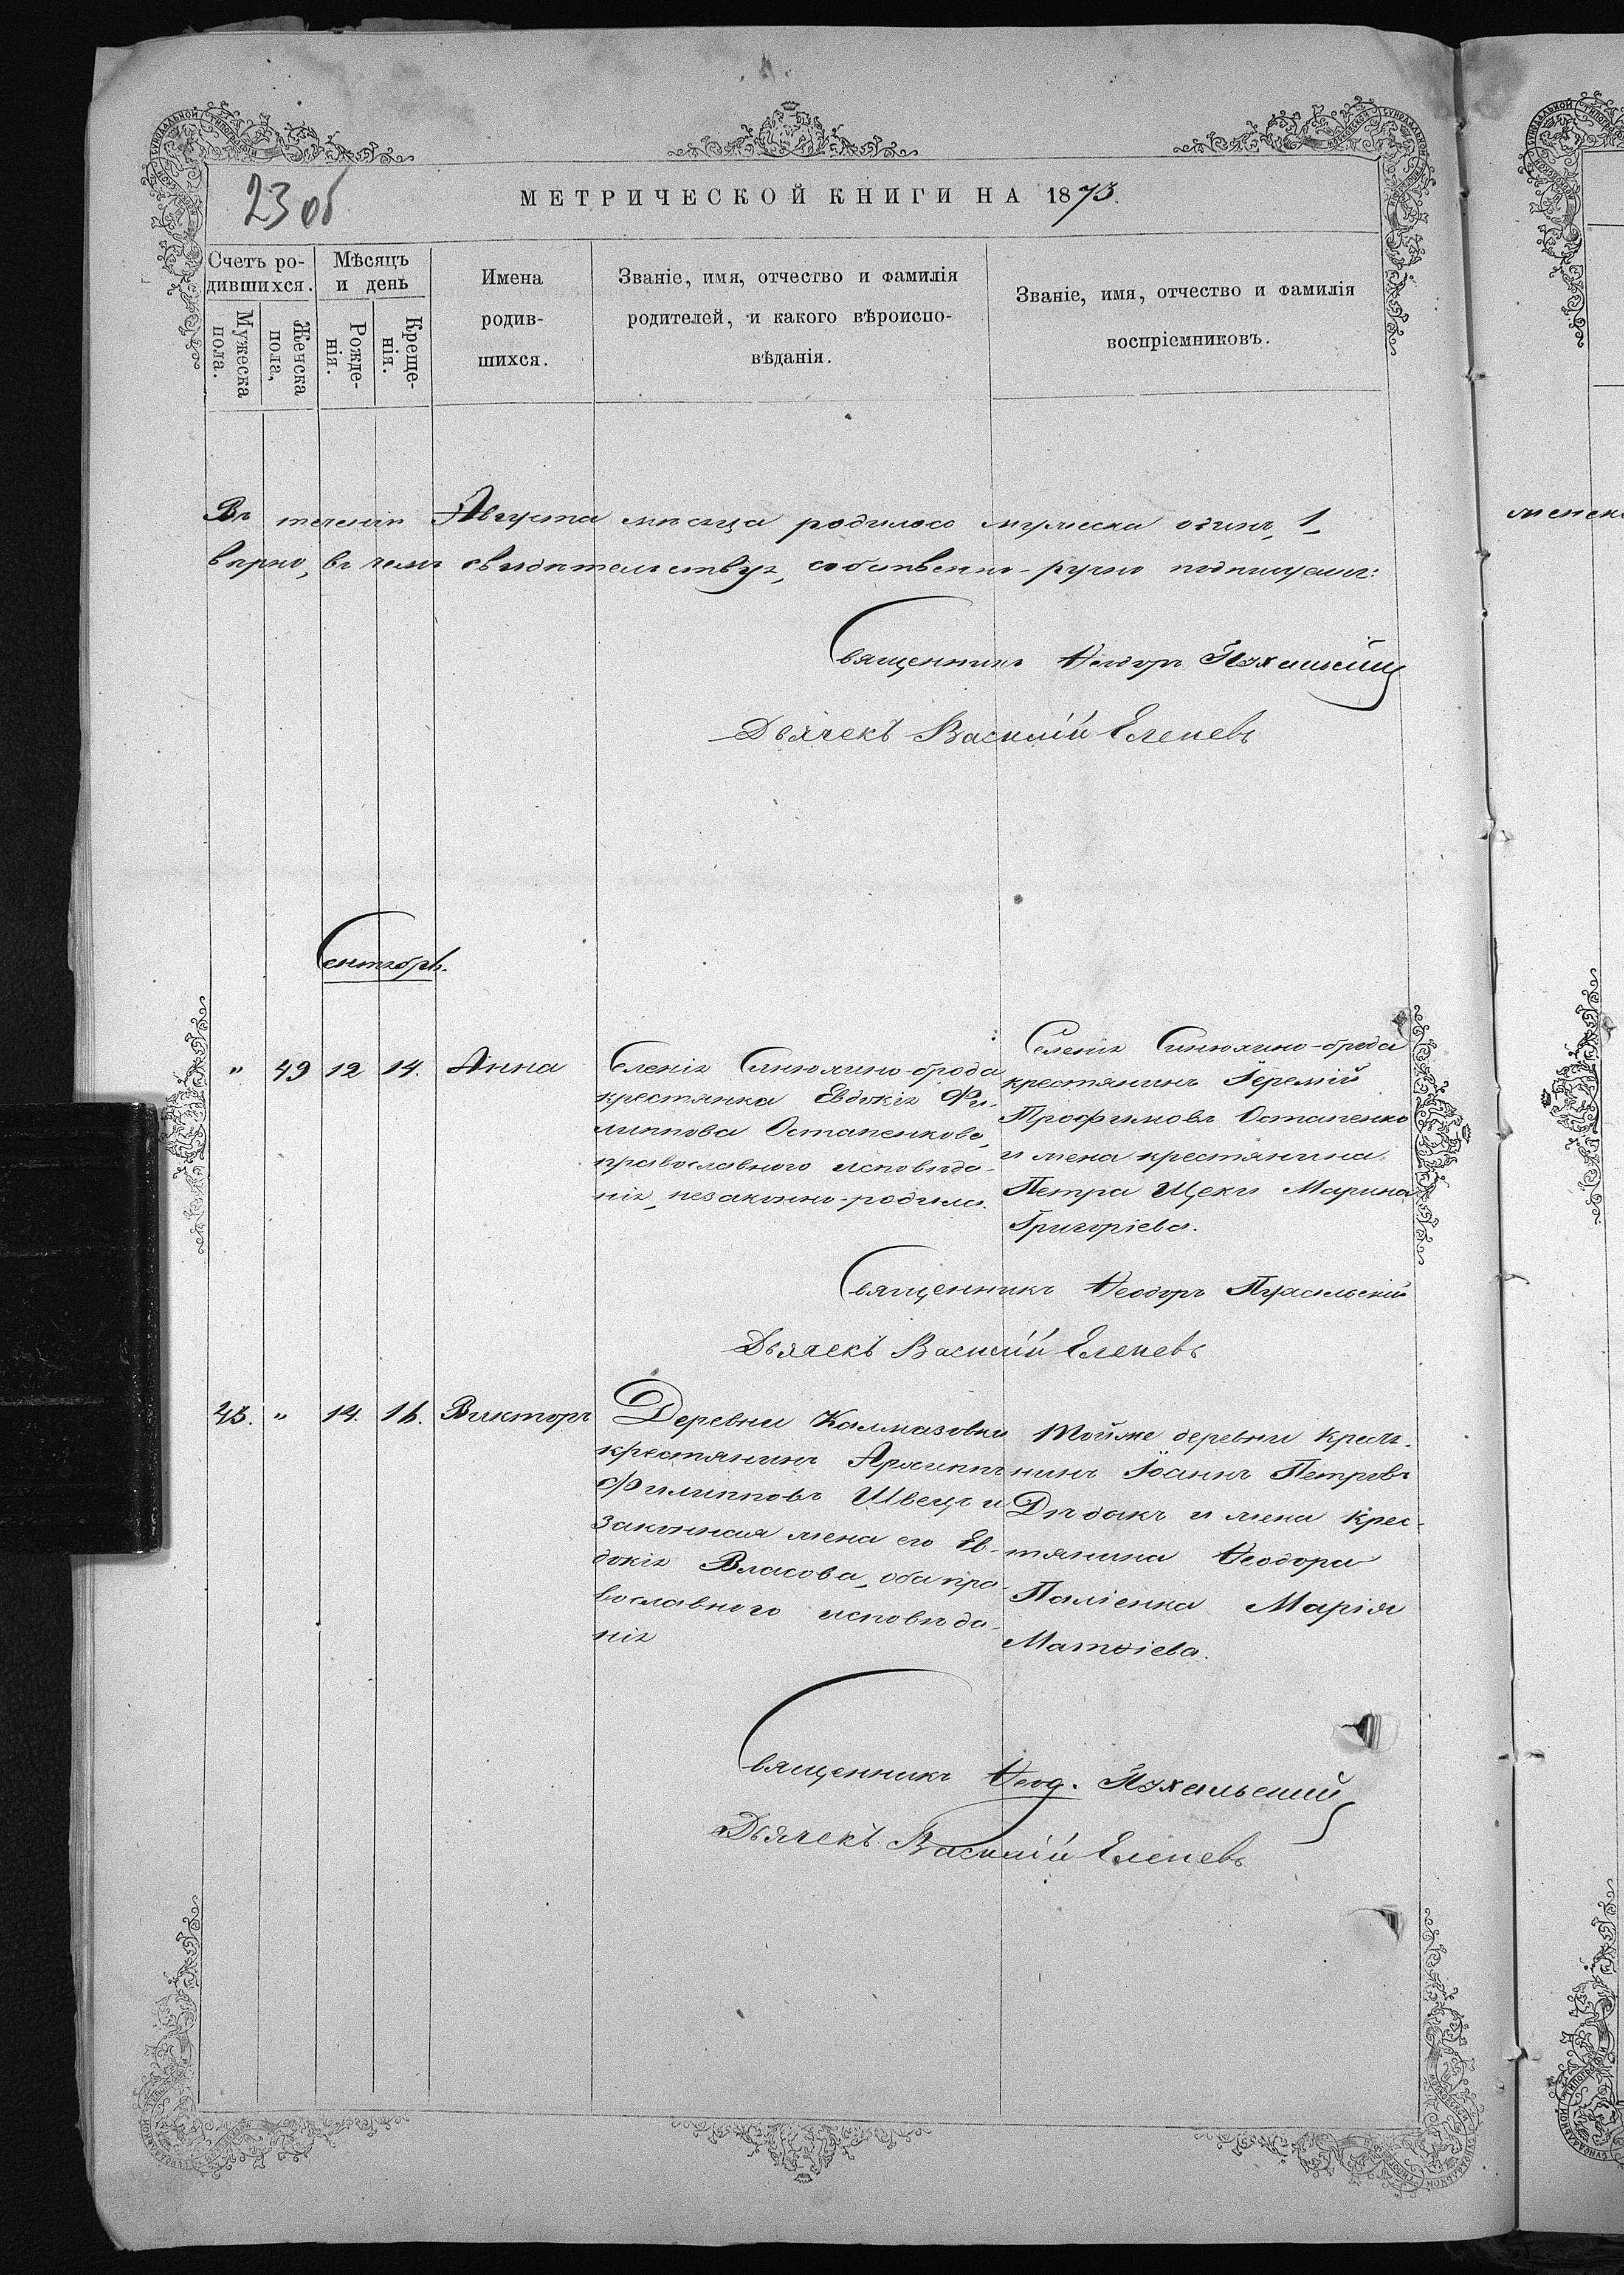 23 об
МЕТРИЧЕСКОЙ КНИГИ НА 1873.
Счетъ ро-
дившихся.
Мужеска
пола.
Женска
пола,
Мѣсяцъ
и день
Рожде-
нія.
Креще-
нія.
Имена
родив-
шихся.
Званіе, имя, отчество и фамилія
родителей, и какого вѣроиспо-
вѣданія.
Званіе, имя, отчество и фамилія
воспріемниковъ.
Въ теченіи Августа мѣсяца родилось мужеска одинъ, 1,
вѣрно, въ чемъ свидѣтельствуя, собственно-ручно подписуемъ:
Священникъ Ѳеодоръ
Дьячекъ Василій Еленевъ
Сентябрь.
" 49 12 14. Анна
Селенія Синюхино-брода
крестянка Евдокія Фи-
липпова Остапенкова,
православного исповѣда-
нія, незаконно-родила.
Селенія Синюхино-брода
крестянинъ Іеремій
Трофимовъ Остапенко
и жена крестянина
Петра Щеки Марина
Григоріева.
Священникъ Ѳеодоръ
Дьячекъ Василій Еленевъ
43. " 14. 16. Викторъ
Деревни Калмазовки
крестянинъ Архипъ
Филипповъ Швецъ и
законная жена его Ев-
докія Власова, оба пра-
вославного исповѣда-
нія
Тойже деревни крестя-
нинъ Іоаннъ Петровъ
Дѣдакъ и жена крес-
тянина Ѳеодора
Паліенка Марія
Матѳіева.
Священникъ Ѳеод.
Дьячекъ Василій Еленевъ